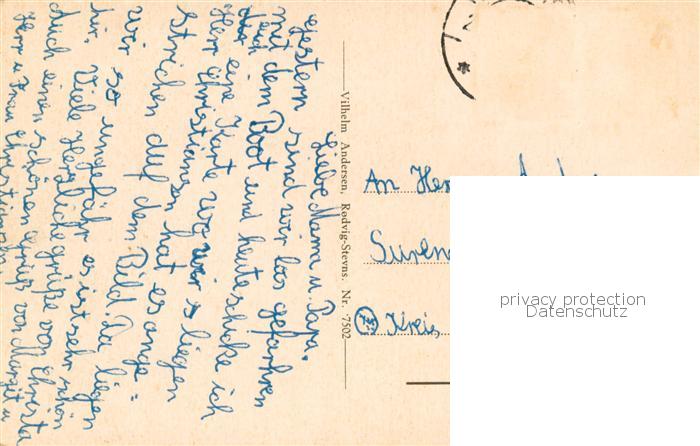 Liebe Mama u. Papa.
Gestern sind wir los gefahren
mit dem Boot und heute schicke ich
euch eine Karte wo wir s liegen
Herr Christiansen hat es ange=
strichen auf dem Bild. Da liegen
wir so ungefähr es ist sehr schön
hir. Viele Herzliche grüße von Christa
Auch einen schönen gruß von Margit u
Herr u. Frau Christiansen
Vilhelm Andersen, Rødvig-Stevns. Nr. 7502
An
Kreis
privacy protection
Datenschutz